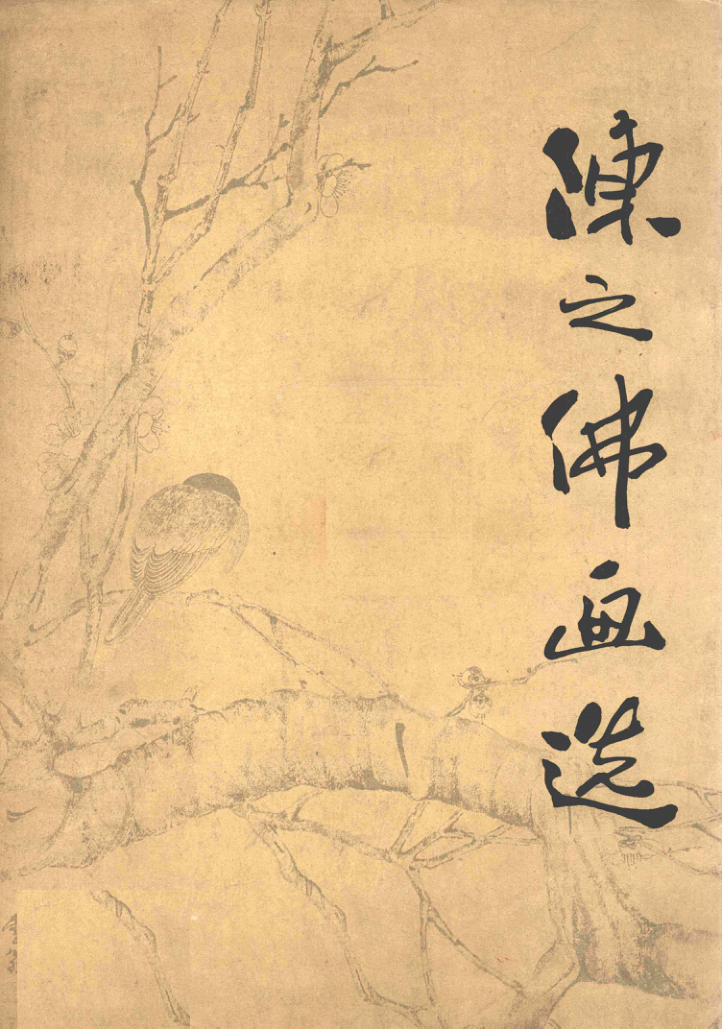 陳之佛画选